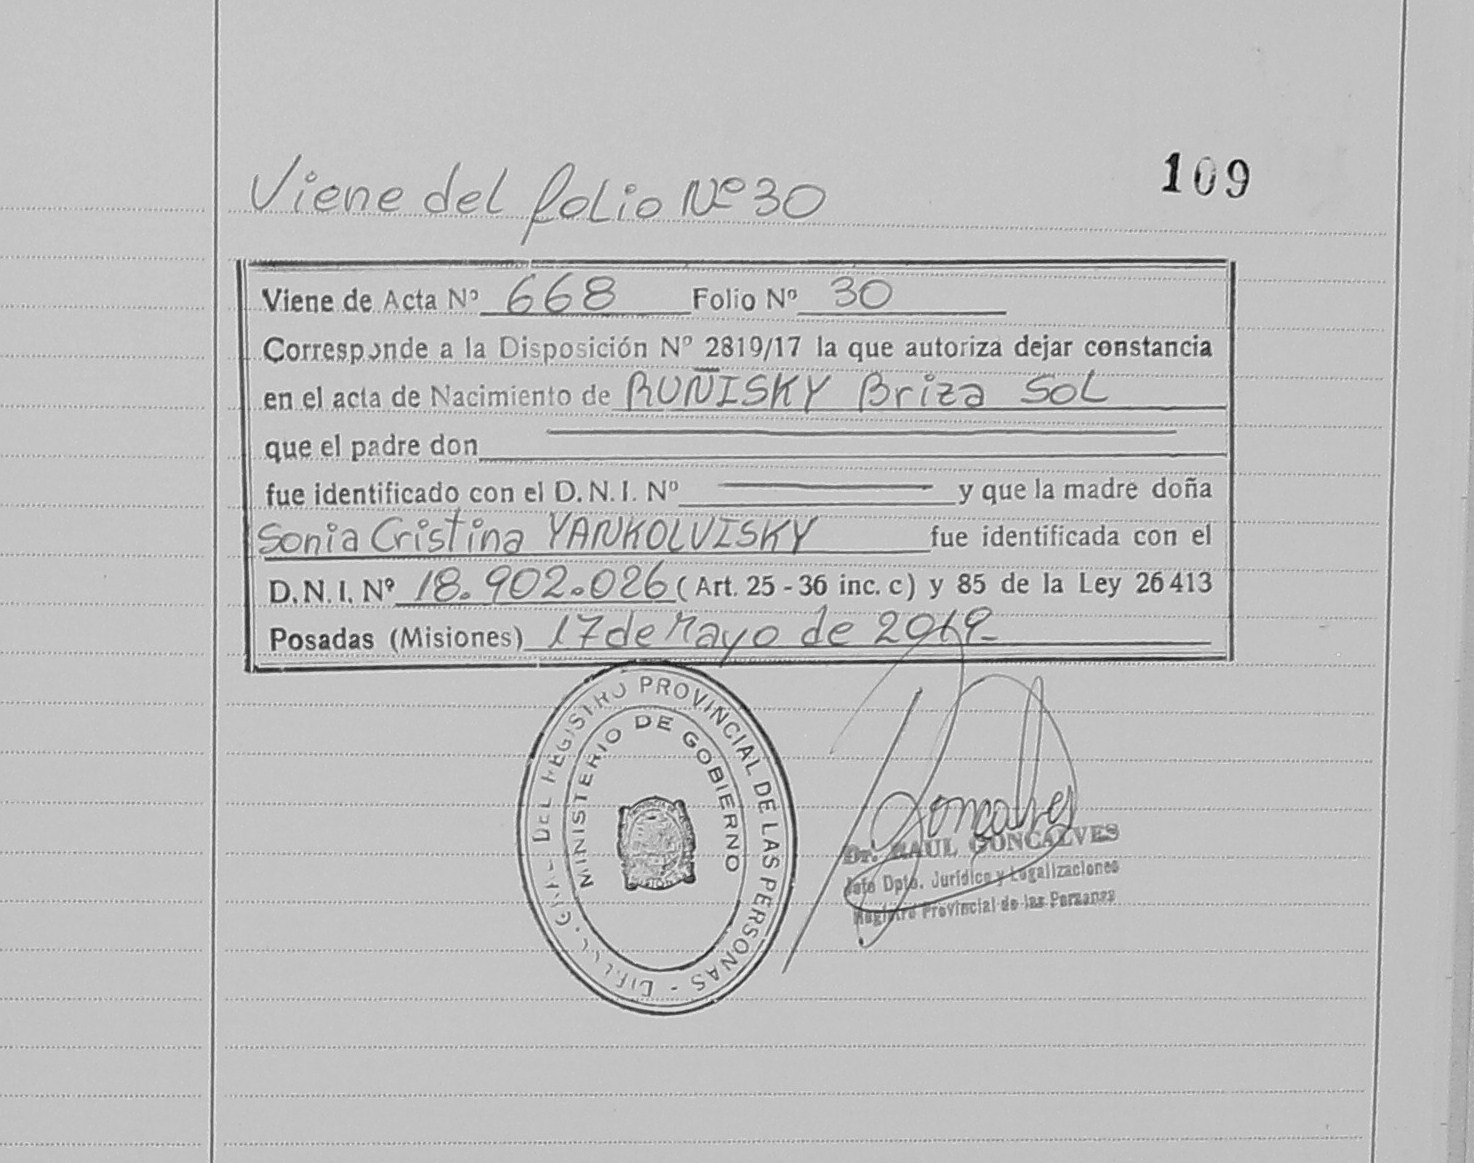 109
Viene del folio Nº 30
Viene de Acta Nº 668 Folio Nº 30
Corresponde a la Disposición Nº 2819/17 la que autoriza dejar constancia
en el acta de Nacimiento de RUÑISKY Briza SOL
que el padre don
fue identificado con el D.N.I. Nº y que la madre doña
Sonia Cristina YANKOLVISKY fue identificada con el
D.N.I. Nº 18.902.026 (Art. 25 - 36 inc. c) y 85 de la Ley 26413
Posadas (Misiones) 17 de Mayo de 2019
DEL REGISTRO PROVINCIAL DE LAS PERSONAS -
MINISTERIO DE GOBIERNO
Goncalves
Dr. RAUL GONCALVES
Jefe Dpto. Jurídico y Legalizaciones
Registro Provincial de las Personas